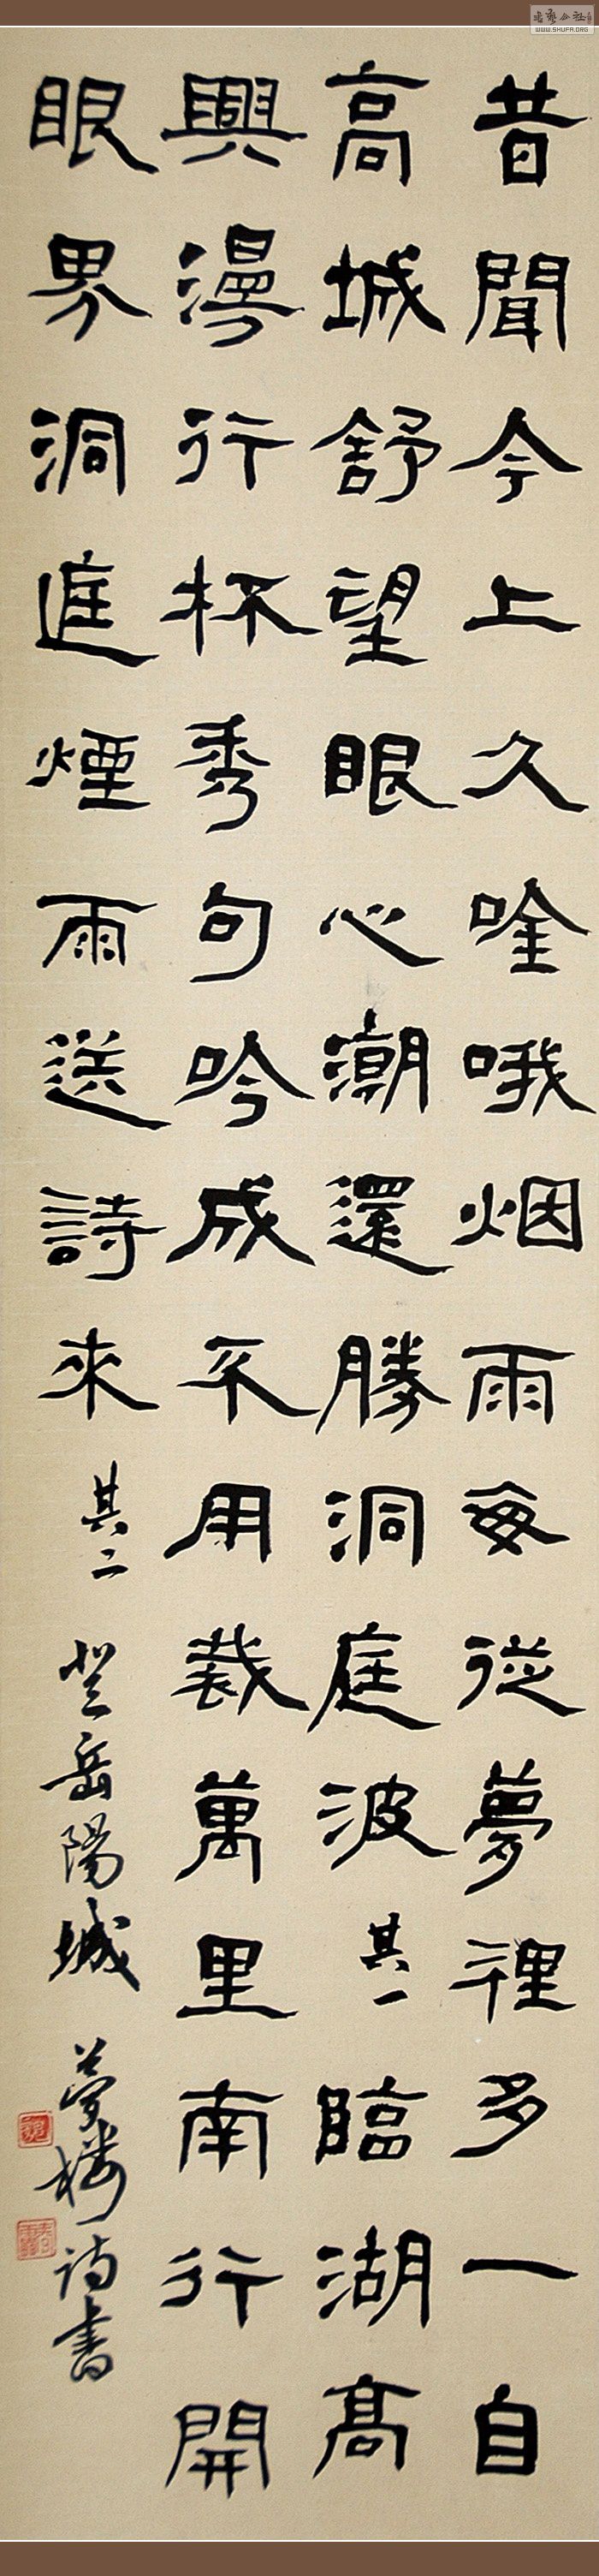 昔聞今上久唫哦烟雨每從夢裡多一自
高城舒望眼心潮還勝洞庭波其一臨湖高
興漫行杯秀句吟成不用裁萬里南行開
眼界洞庭煙雨送詩來其二登岳陽城夢樓詩書
WWW.SHUFA.ORG